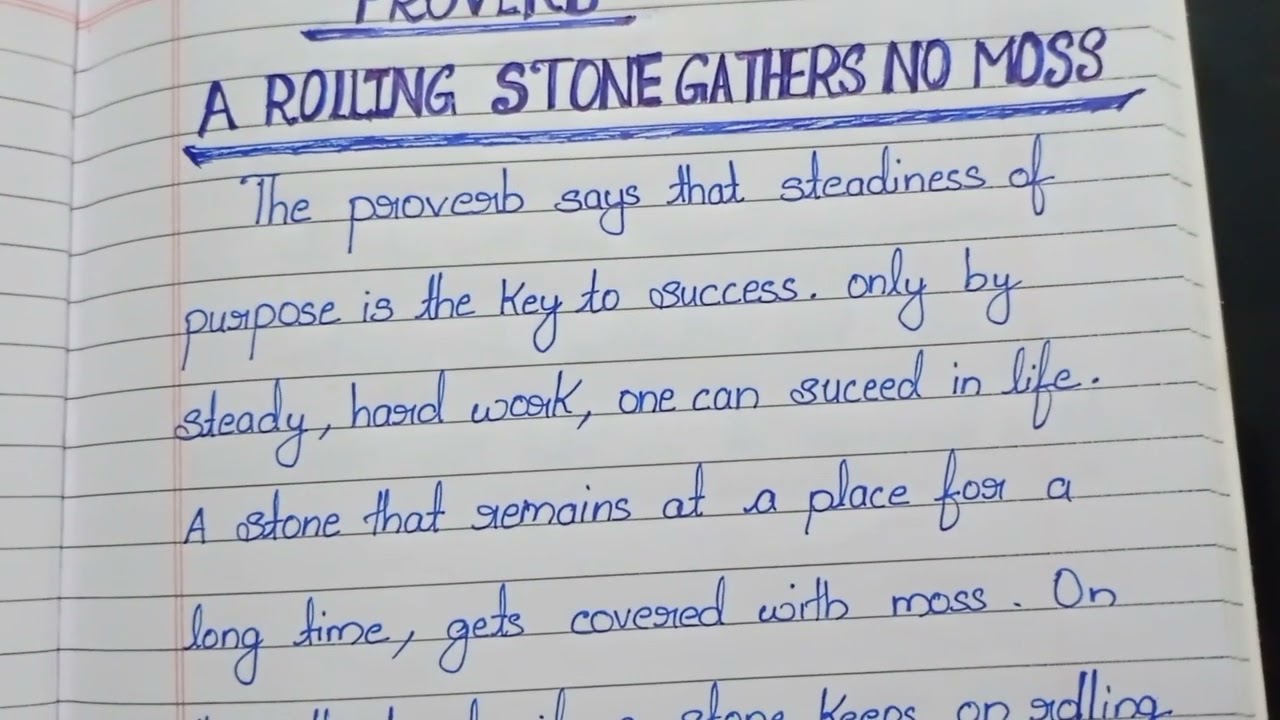 PROVERB
A ROLLING STONE GATHERS NO MOSS
The proverb says that steadiness of
purpose is the key to success. only by
steady, hard work, one can suceed in life.
A stone that remains at a place for a
long time, gets covered with moss. On
stone keeps on rolling